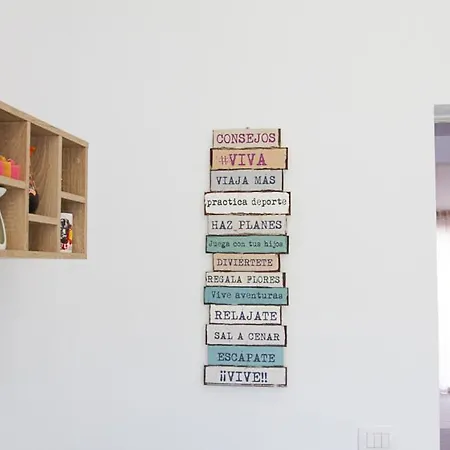 CONSEJOS
#VIVA
VIAJA MAS
practica deporte
HAZ PLANES
Juega con tus hijos
DIVIÉRTETE
REGALA FLORES
Vive aventuras
RELÁJATE
SAL A CENAR
ESCÁPATE
¡¡VIVE!!